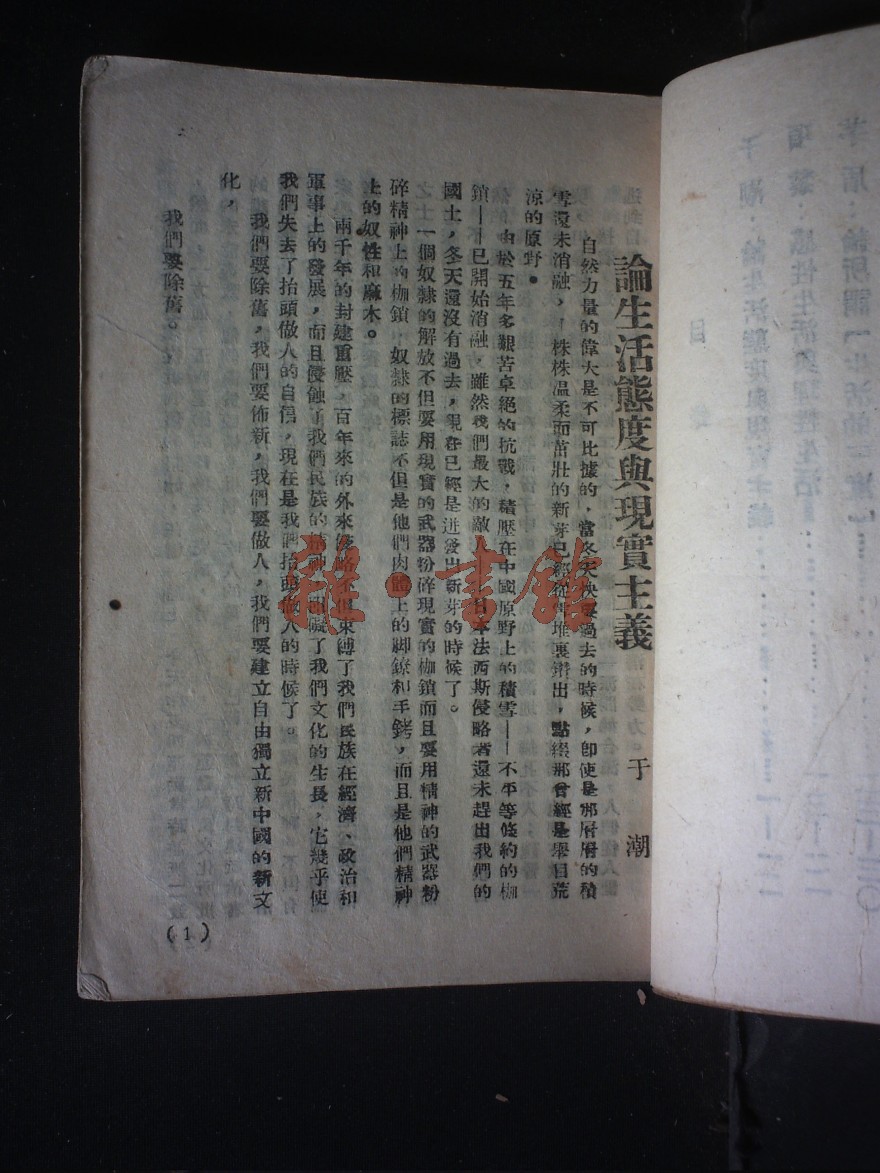 論生活態度與現實主義
于潮
自然力量的偉大是不可比擬的,當冬天快要過去的時候,卽使是那層層的積
雪還未消融,一株株温柔而茁壯的新芽已經從雪堆裏鑽出,點綴那曾經是舉目荒
涼的原野。
由於五年多艱苦卓絕的抗戰,積壓在中國原野上的積雪——不平等條約的枷
鎖——已開始消融,雖然我們最大的敵人 日本法西斯侵略者還未趕出我們的
國土,冬天還沒有過去,現在已經是迸發出新芽的時候了。
一個奴隸的解放不但要用現實的武器粉碎現實的枷鎖而且要用精神的武器粉
碎精神上的枷鎖,奴隸的標誌不但是他們肉體上的脚鐐和手銬,而且是他們精神
上的奴性和麻木。
兩千年的封建重壓,百年來的外來侵略不但束縛了我們民族在經濟、政治和
軍事上的發展,而且侵蝕了我們民族的精神,阻礙了我們文化的生長,它幾乎使
我們失去了抬頭做人的自信,現在是我們抬頭做人的時候了。
我們要除舊,我們要佈新,我們要做人,我們要建立自由獨立新中國的新文
化,
我們要除舊。
(1)
雜·書館